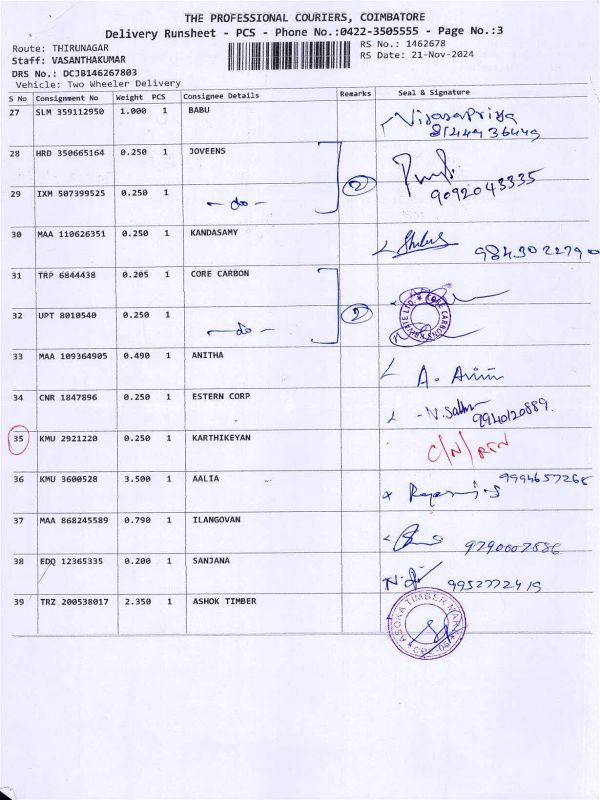 THE PROFESSIONAL COURIERS, COIMBATORE
Delivery Runsheet - PCS - Phone No.:0422-3505555 - Page No.:3
Route: THIRUNAGAR
RS No.: 1462678
Staff: VASANTHAKUMAR
RS Date: 21-Nov-2024
DRS No.: DCJB146267803
Vehicle: Two Wheeler Delivery
S No Consignment No Weight PCS Consignee Details Remarks Seal & Signature
27 SLM 359112950 1.000 1 BABU VijayaPriya
8144936449
28 HRD 350665164 0.250 1 JOVEENS
29 IXM 507399525 0.250 1 -do- 2 9092043335
30 MAA 110626351 0.250 1 KANDASAMY 9843022790
31 TRP 6844438 0.205 1 CORE CARBON
32 UPT 8010540 0.250 1 -do- 2 CORE CARBONS PRIVATE LTD
33 MAA 109364905 0.490 1 ANITHA A.
34 CNR 1847896 0.250 1 ESTERN CORP
9940120889.
35 KMU 2921220 0.250 1 KARTHIKEYAN C/N/RTN
36 KMU 3600528 3.500 1 AALIA 9994657268
37 MAA 868245589 0.790 1 ILANGOVAN 9790007886
38 EDQ 12365335 0.200 1 SANJANA 9952772419
39 TRZ 200538017 2.350 1 ASHOK TIMBER ASOKA TIMBER MART